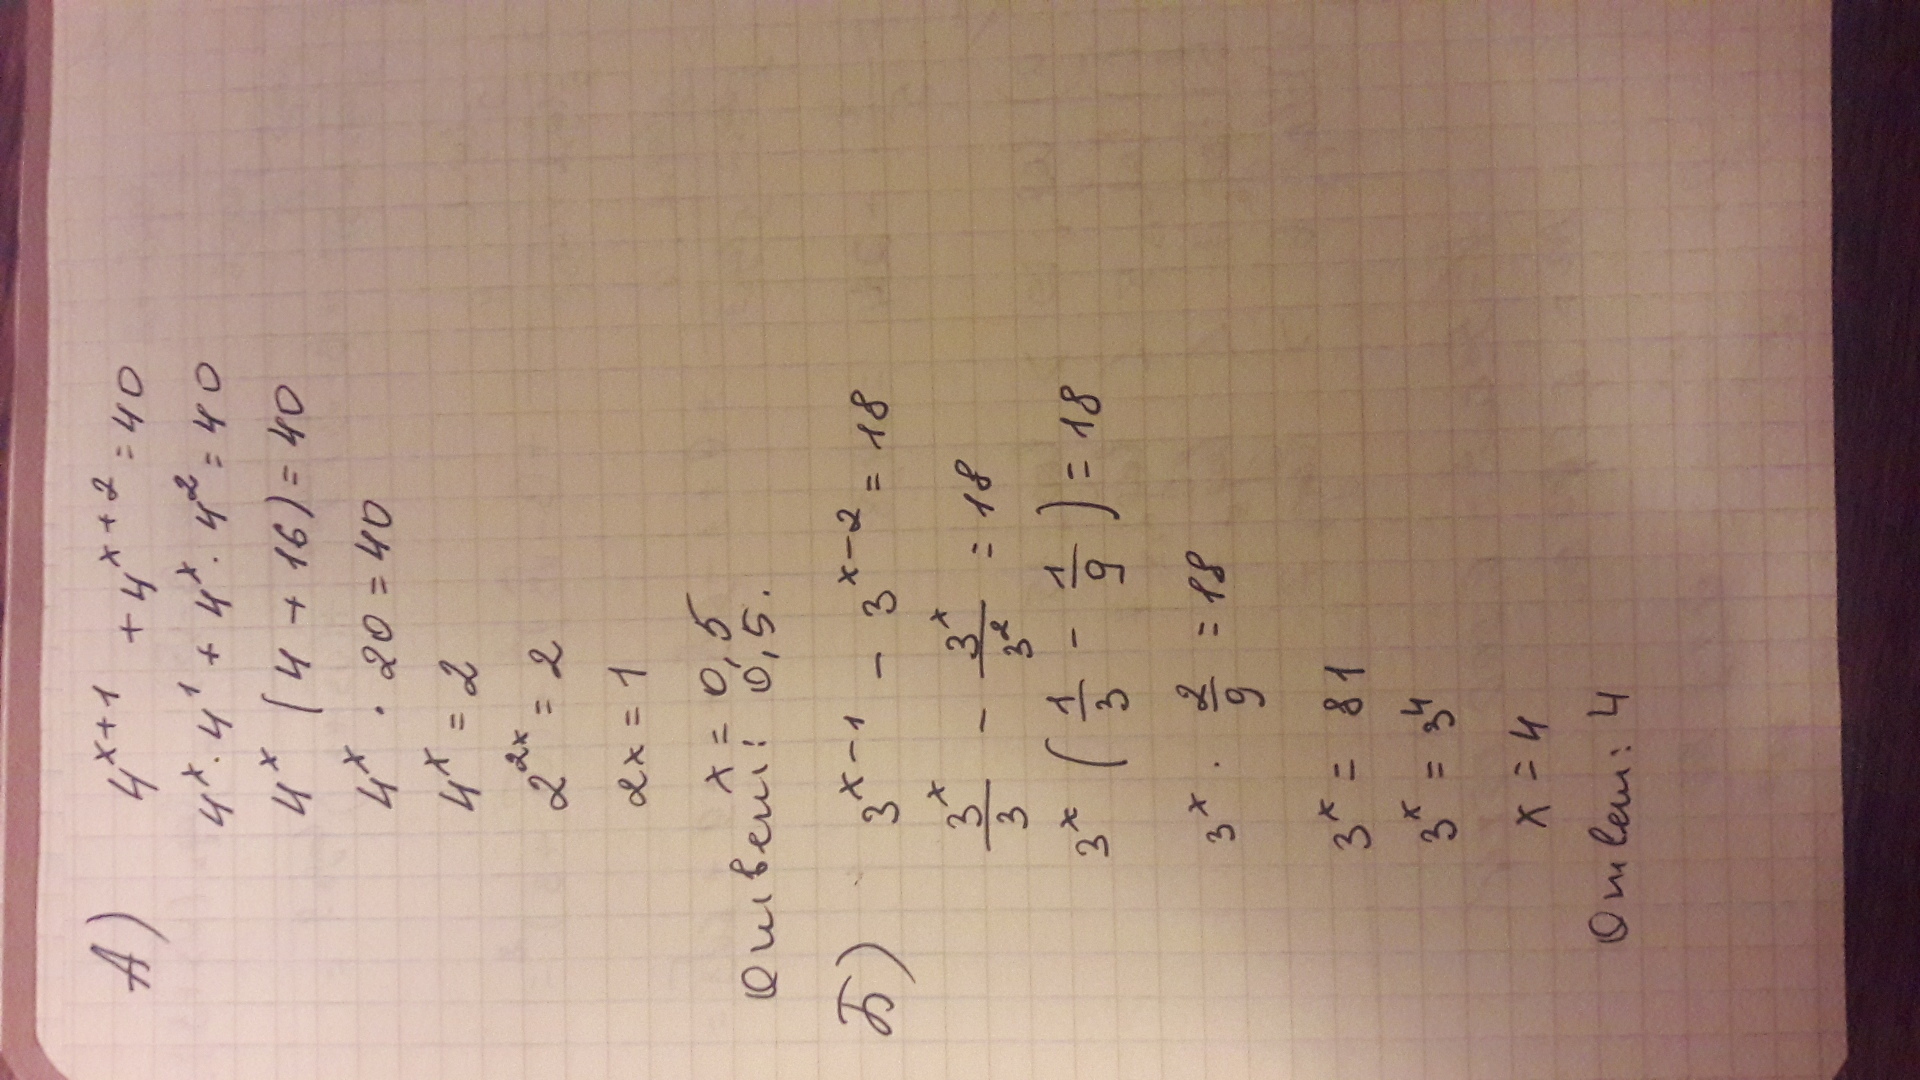 А) 4^(x+1) + 4^(x+2) = 40
4^x · 4^1 + 4^x · 4^2 = 40
4^x (4 + 16) = 40
4^x · 20 = 40
4^x = 2
2^(2x) = 2
2x = 1
x = 0,5
Ответ: 0,5.
Б) 3^(x-1) - 3^(x-2) = 18
3^x/3 - 3^x/3^2 = 18
3^x (1/3 - 1/9) = 18
3^x · 2/9 = 18
3^x = 81
3^x = 3^4
x = 4
Ответ: 4